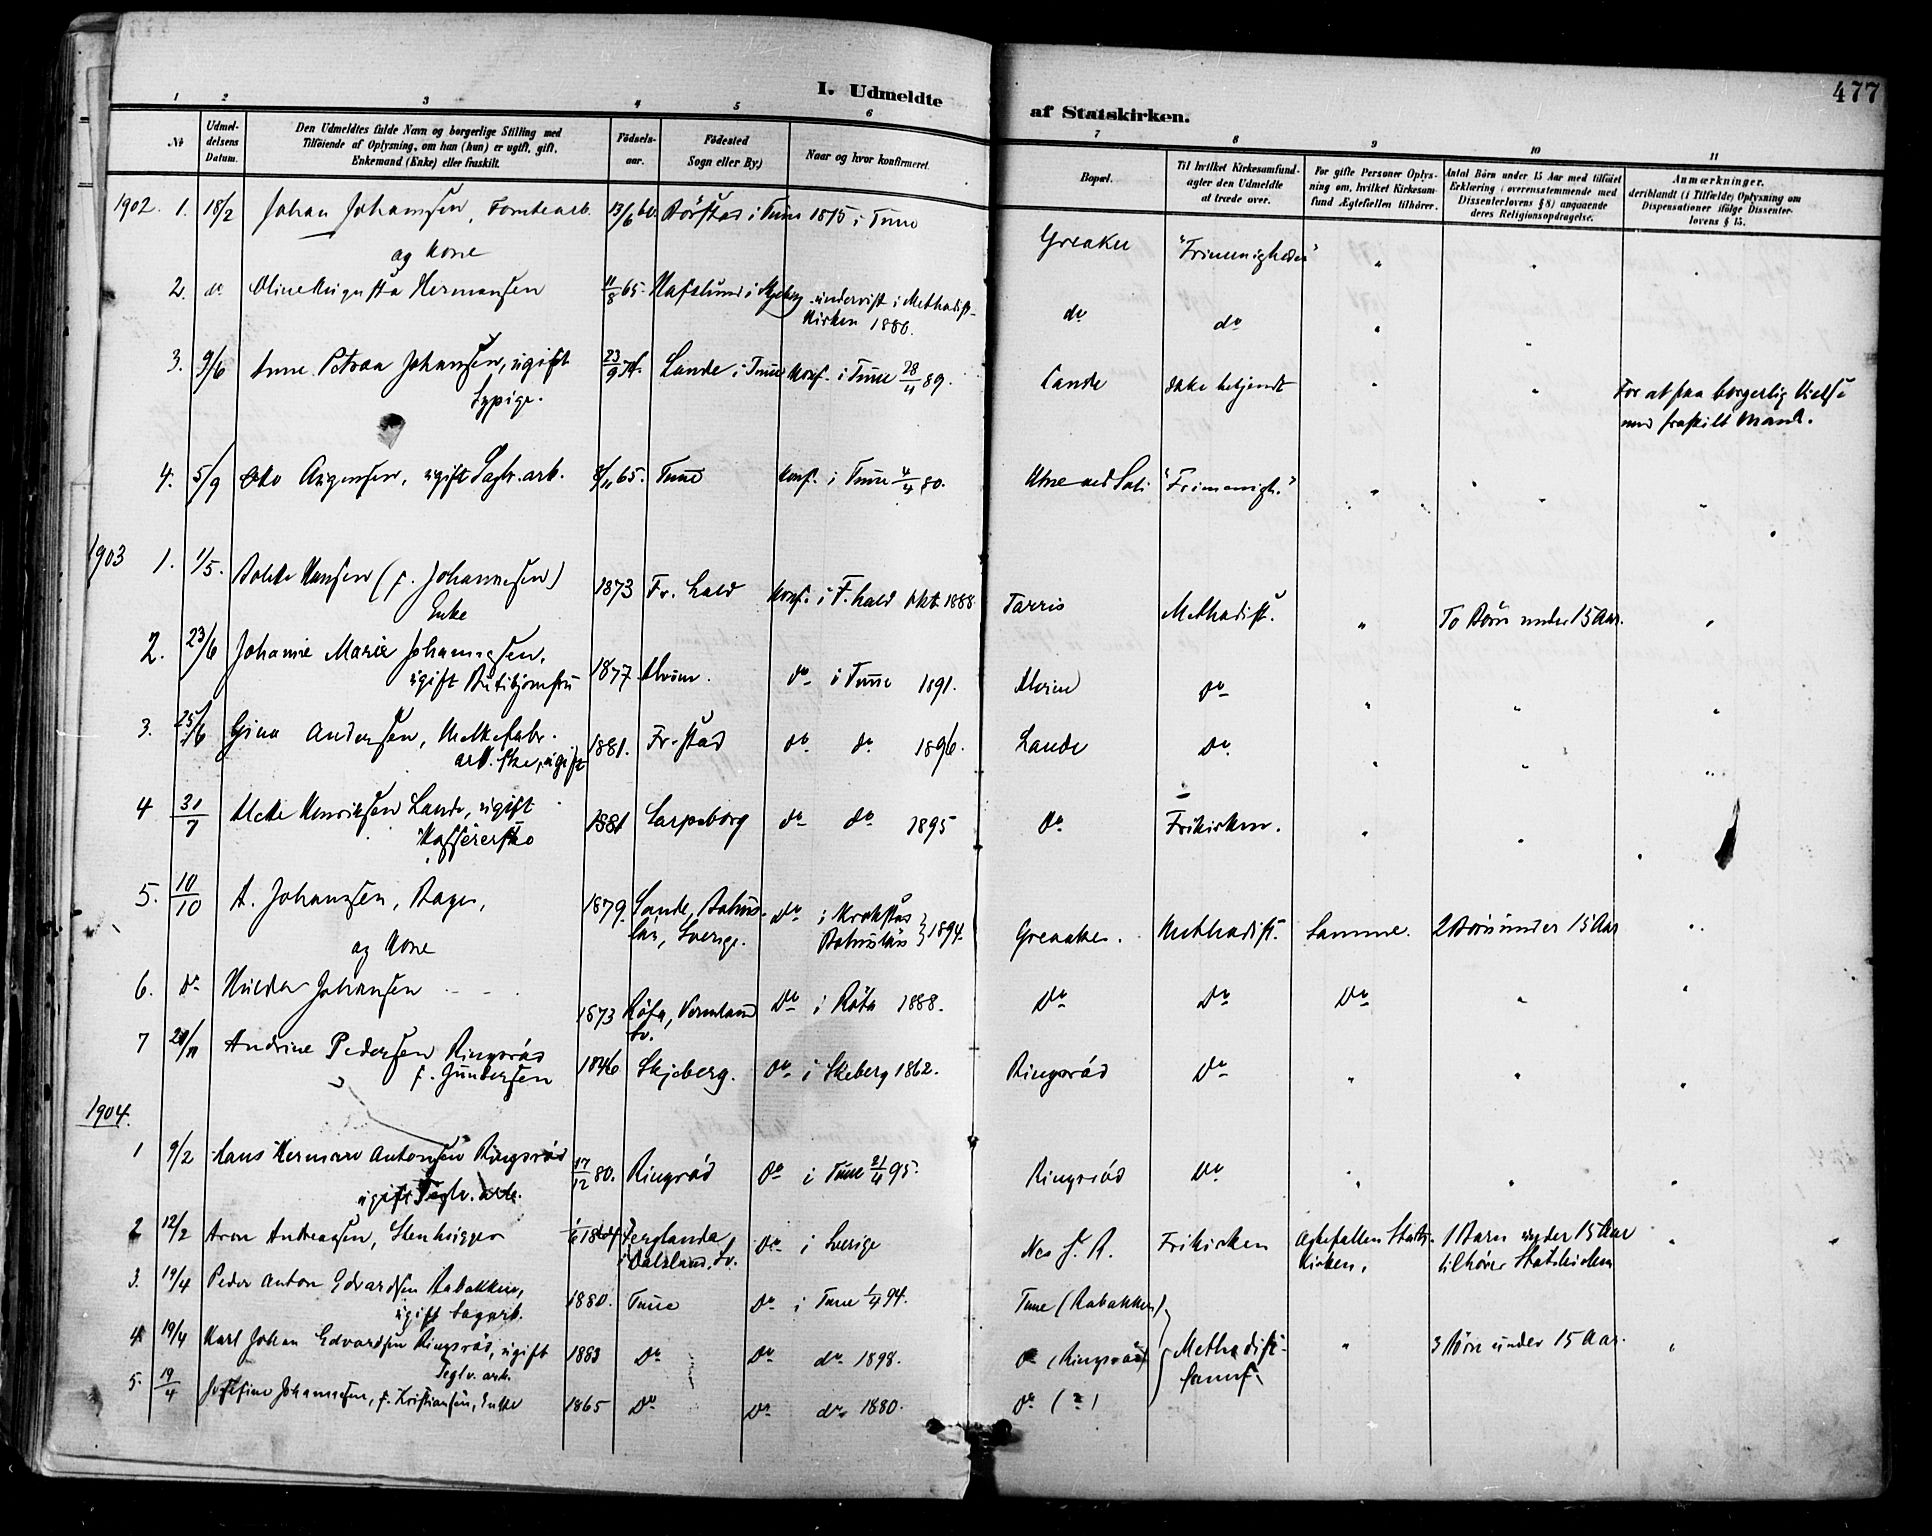 477
I. Udmeldte af Statskirken.
1 2 3 4 5 6 7 8 9 10 11
Nt
Udmel-
delsens
Datum.
Den Udmeldtes fulde Navn og borgerlige Stilling med
Tilføiende af Oplysning, om han (hun) er ugift, gift,
Enkemand (Enke) eller fraskilt.
Fødsels-
aar.
Fødested
Sogn eller By)
Naar og hvor konfirmeret.
Bopæl.
Til hvilket Kirkesamfund
agter den Udmeldte
at træde over.
For gifte Personer Oplys-
ning om, hvilket Kirkesam-
fund Ægtefællen tilhører.
Antal Børn under 15 Aar med tilføiet
Erklæring i overensstemmende med
Dissenterlovens § 8) angaaende
deres Religionsopdragelse.
Anmærkninger,
deriblandt (i Tilfælde) Oplysning om
Dispensationer ifølge Dissenter-
lovens § 15.
1902. 1. 18/2 Johan Johansen, Tomtearb. 13/6 60. i Tune 1875 i Tune Greaker "Frimenigheden" " "
og Kone
2. do Oline Augusta Hermansen 11/8 65. Hafslund i Skjeberg undervist i Methodist- do do " "
Kirken 1880.
3. 9/6 Anne Petrea Johansen, ugift 23/9 74. Lande i Tune Konf. i Tune 28/4 89. Lande ikke bekjendt " " For at faa borgerlig Vielse
Sypige. med fraskilt Mand.
4. 5/9 Otto Aagensen, ugift Sagbr. arb. 65. Tune Konf. i Tune 4/4 80. "Frimenigh." " " "
1903 1. 1/5. Hansen (f. Johannesen) 1873 Fr. hald Konf. i F. hald Okt. 1888 Tarris Methodist. " To Børn under 15 Aar. "
Enke
2. 23/6 Johanne Marie Johannesen, 1877 Alvim. do i Tune 1891. Alvim do " " "
ugift Butikjomfru
3. 25/6 Gina Andersen, 1881. Fr.stad do do 1896. Lande do " " "
arb.ske, ugift
4 31/7 Henriksen Lande, ugift 1881 Sarpsborg do do 1895 do Frikirken. " " "
Kassererske
5. 10/10 A. Johansen, Bager, 1879. Lande, Bahus- do i Krokstad 1894. Greaaker. Methodist. Samme. 2 Børn under 15 Aar "
län, Sverige. Bahuslän
og Kone
6. do Hulda Johansen 1873 Vermland do i 1888. do do do " "
Sv.
7 Andrine Pedersen Ringsrød 1846 Skjeberg. do i Skeberg 1862. Ringsrød do " " "
f. Gundersen
1904.
1 9/2 Hans Herman Antonsen Ringsrød 17/12 80. Ringsrød do i Tune 21/4 95. Ringsrød do " " "
ugift Teglv. arb.
2 12/2 Aron Andreasen, Stenhugger do i Sverige Nes Frikirken Ægtefællen Stats- 1 Barn under 15 Aar "
i Dalsland, Sv. Kirken. tilhører Statskirken
3. 19/4 Peder Anton Edvardsen Rabakken, 1880. Tune do i Tune 1/4 94. Tune (Rabakken)
ugift Sagarb.
4 19/4 Karl Johan Edvardsen Ringsrød, ugift 1883 do do do 1898. do (Ringsrød) Methodist- " 3 Børn under 15 Aar. "
Teglv. ark. samf.
5. 19/4 Josefine Johannesen, f. Kristiansen, Enke 1865 do do do 1880. do (?)